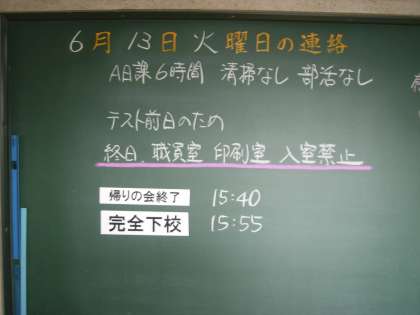 6月13日火曜日の連絡
A日課6時間 清掃なし 部活なし
テスト前日のため
終日、職員室 印刷室 入室禁止
帰りの会終了 15:40
完全下校 15:55